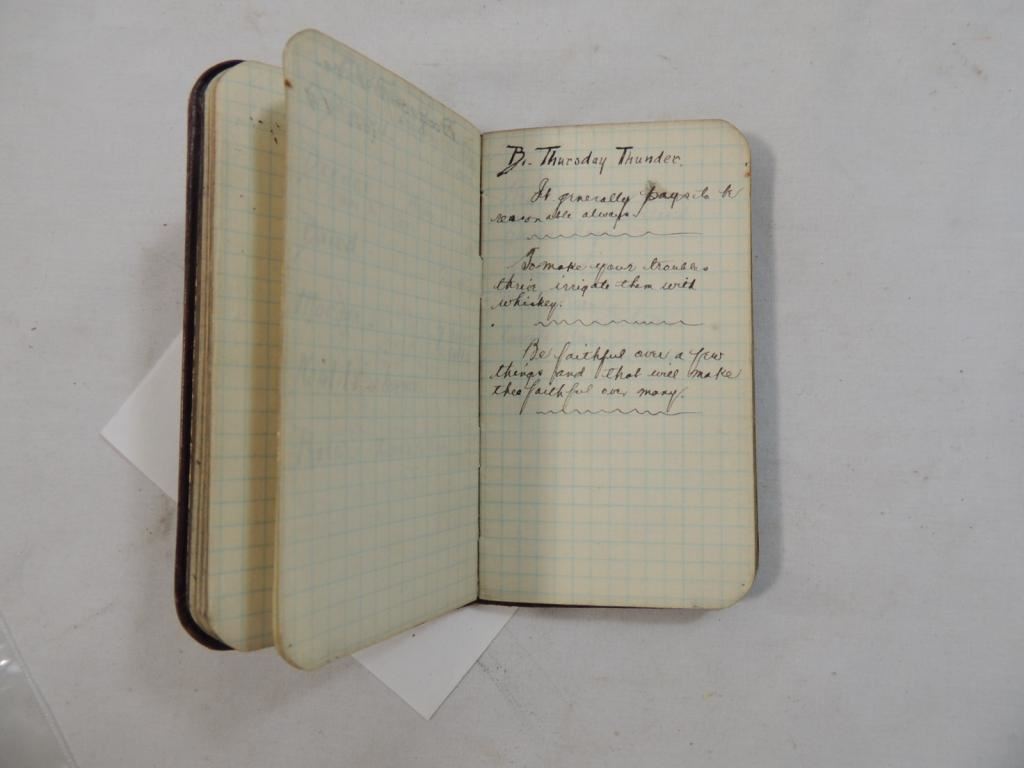 By Thursday Thunder.
It generally pays to be
reasonable always.
To make your troubles
thrive irrigate them with
whiskey.
Be faithful over a few
things and that will make
thee faithful over many.